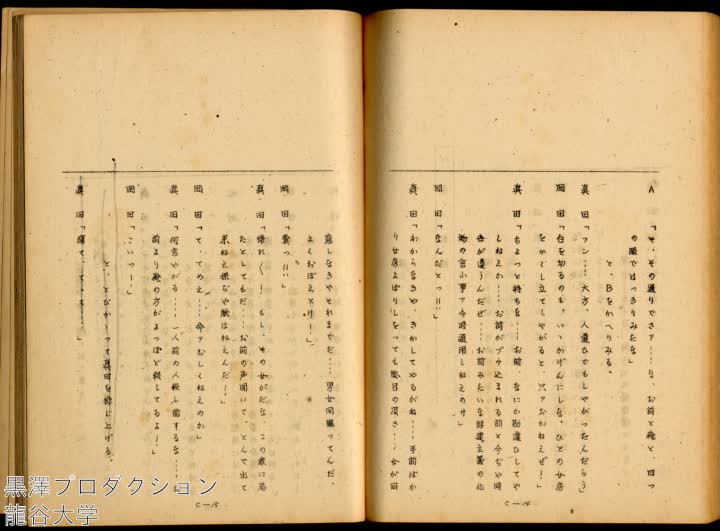 A　「そ、その通りでさァ……な、お前と俺と、四つ
の眼ではっきりみたな」
と、Bをかへりみる。
眞　田「フン……大方、人違ひでもしやがったんだらう」
岡　田「白を切るのも、いゝかげんにしな、ひとの女房
をかくし立てしやがると、只ァおかねえぜ！」
眞　田「ちょっと待ちな……お前、なにか勘違ひしてや
しねえか……お前がブチ込まれる前と今ぢや時
世が違うんだぜ……お前みたいな封建主義の化
物の言ふ事ァ今時通用しねえのサ」
岡　田「なんだとっ!!」
眞　田「わからなきゃ、きかしてやるがね……手前ばか
り女房よばりしをっても駄目の皮さ……女が同
C—14
意しなきやそれまでだ……男女同権ってんだ、
よくおぼえとけ！」
岡　田「糞っ!!」
眞　田「帰れ〱！　もし、その女がだな　この家に居
たとしてもだ……お前の声聞いて、とんで出て
来ねえ様ぢや脈はねえんだ！」
岡　田「て、てめえ……命ァおしくねえのか」
眞　田「何言やがる……一人前の人殺し面するな……
前より俺の方がよっぽど殺してるよ！」
岡　田「こいつ！」
と、とびかゝって眞田を捻じ上げる。
眞　田「痛て、て、て……」
C—15
黒澤プロダクション
龍谷大学